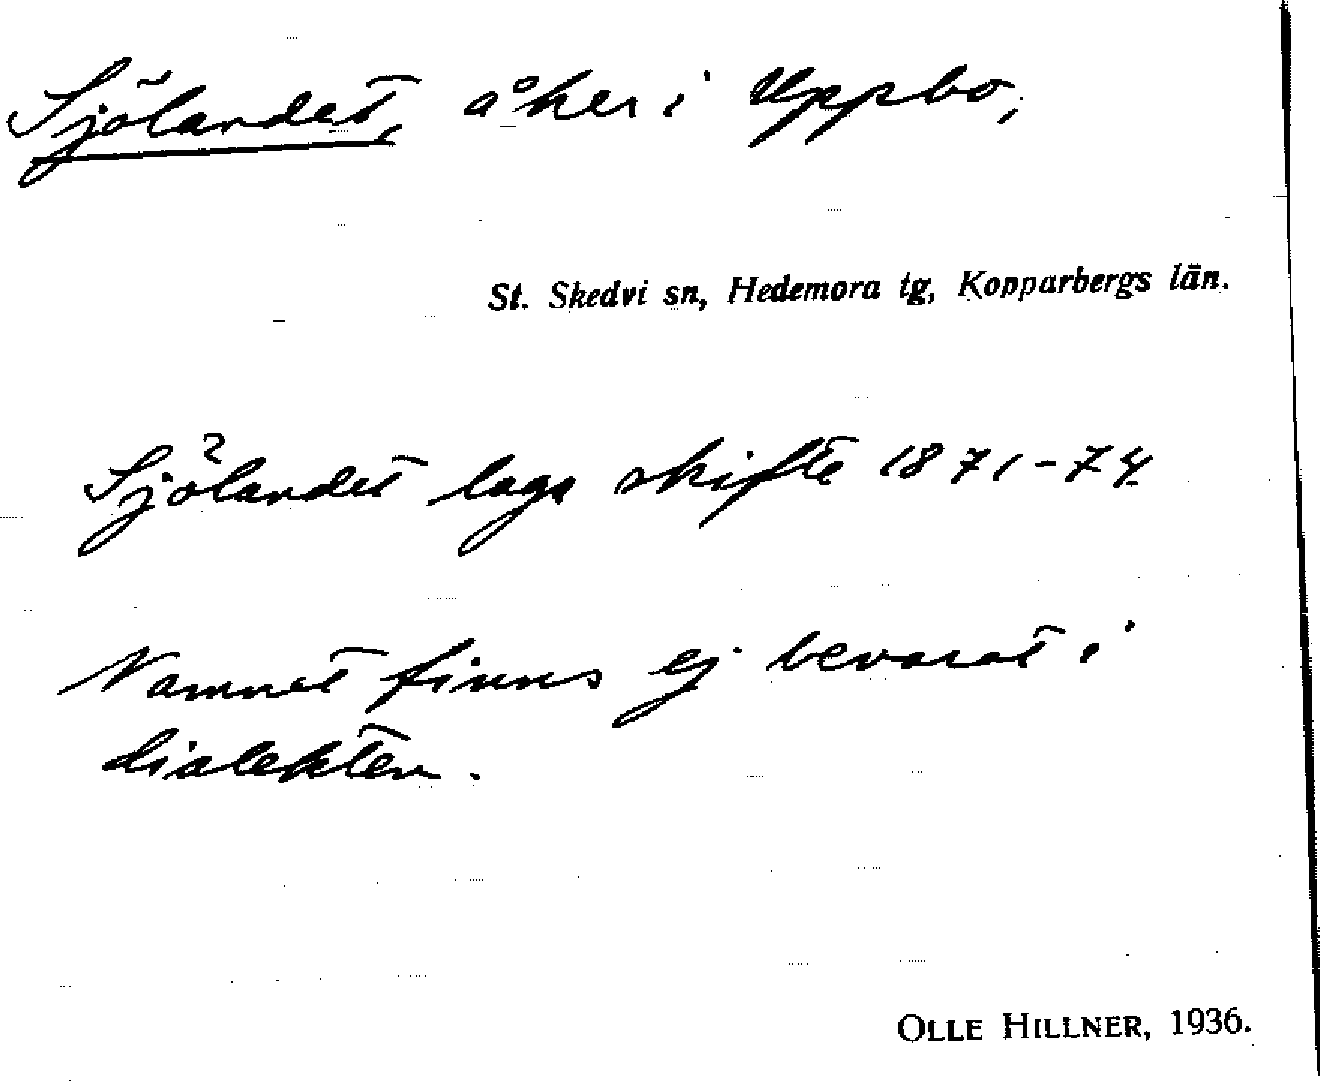 Sjölandet, åker i Uppbo,
St. Skedvi sn, Hedemora tg, Kopparbergs län.
Sjölandet laga skifte 1871-74
Namnet finns ej bevarat i
dialekten.
OLLE HILLNER, 1936.